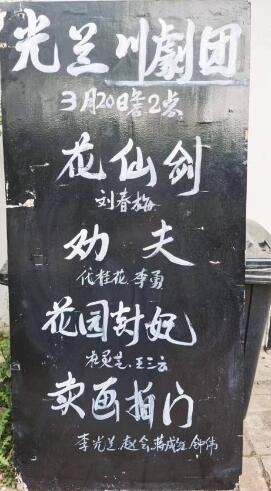 光兰川劇团
3月20日售2点
花仙剑
刘春梅
劝夫
代桂花 李勇
花园封妃
王三云
卖画拍门
李光 赵会 蒋成红 钟伟